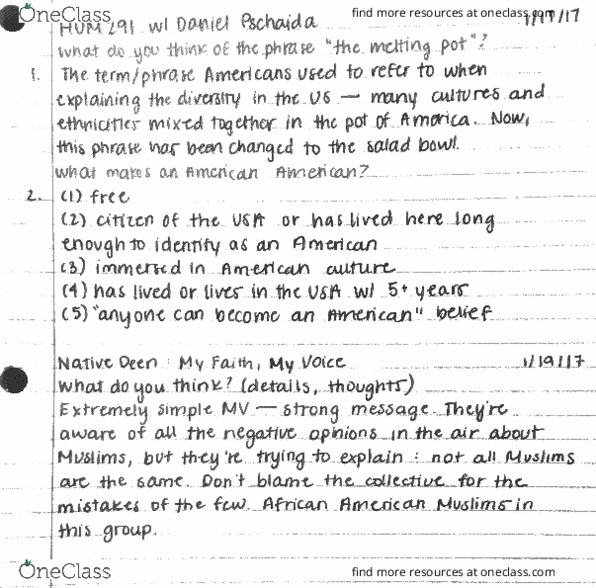 OneClass
find more resources at oneclass.com
HUM 291 w/ Daniel Pschaida 1/17/17
what do you think of the phrase "the melting pot"?
1. The term/phrase Americans used to refer to when
explaining the diversity in the US — many cultures and
ethnicities mixed together in the pot of America. Now,
this phrase has been changed to the salad bowl.
what makes an American American?
2. (1) free
(2) citizen of the USA or has lived here long
enough to identify as an American
(3) immersed in American culture
(4) has lived or lives in the USA w/ 5+ years
(5) "anyone can become an American" belief
Native Deen: My Faith, My Voice 1/19/17
what do you think? (details, thoughts)
Extremely simple MV — strong message. They're
aware of all the negative opinions in the air about
Muslims, but they're trying to explain: not all Muslims
are the same. Don't blame the collective for the
mistakes of the few. African American Muslims in
this group.
OneClass
find more resources at oneclass.com